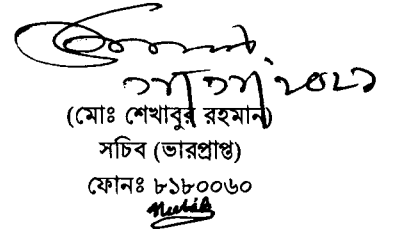 (মোঃ শেখাবুর রহমান)
সচিব (ভারপ্রাপ্ত)
ফোনঃ ৮১৮০০৬০